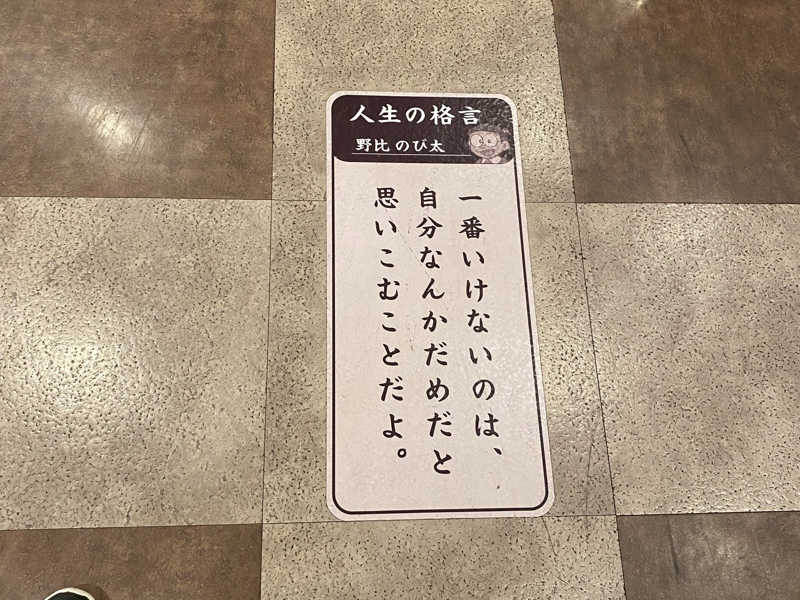 人生の格言
野比 のび太
一番いけないのは、
自分なんかだめだと
思いこむことだよ。